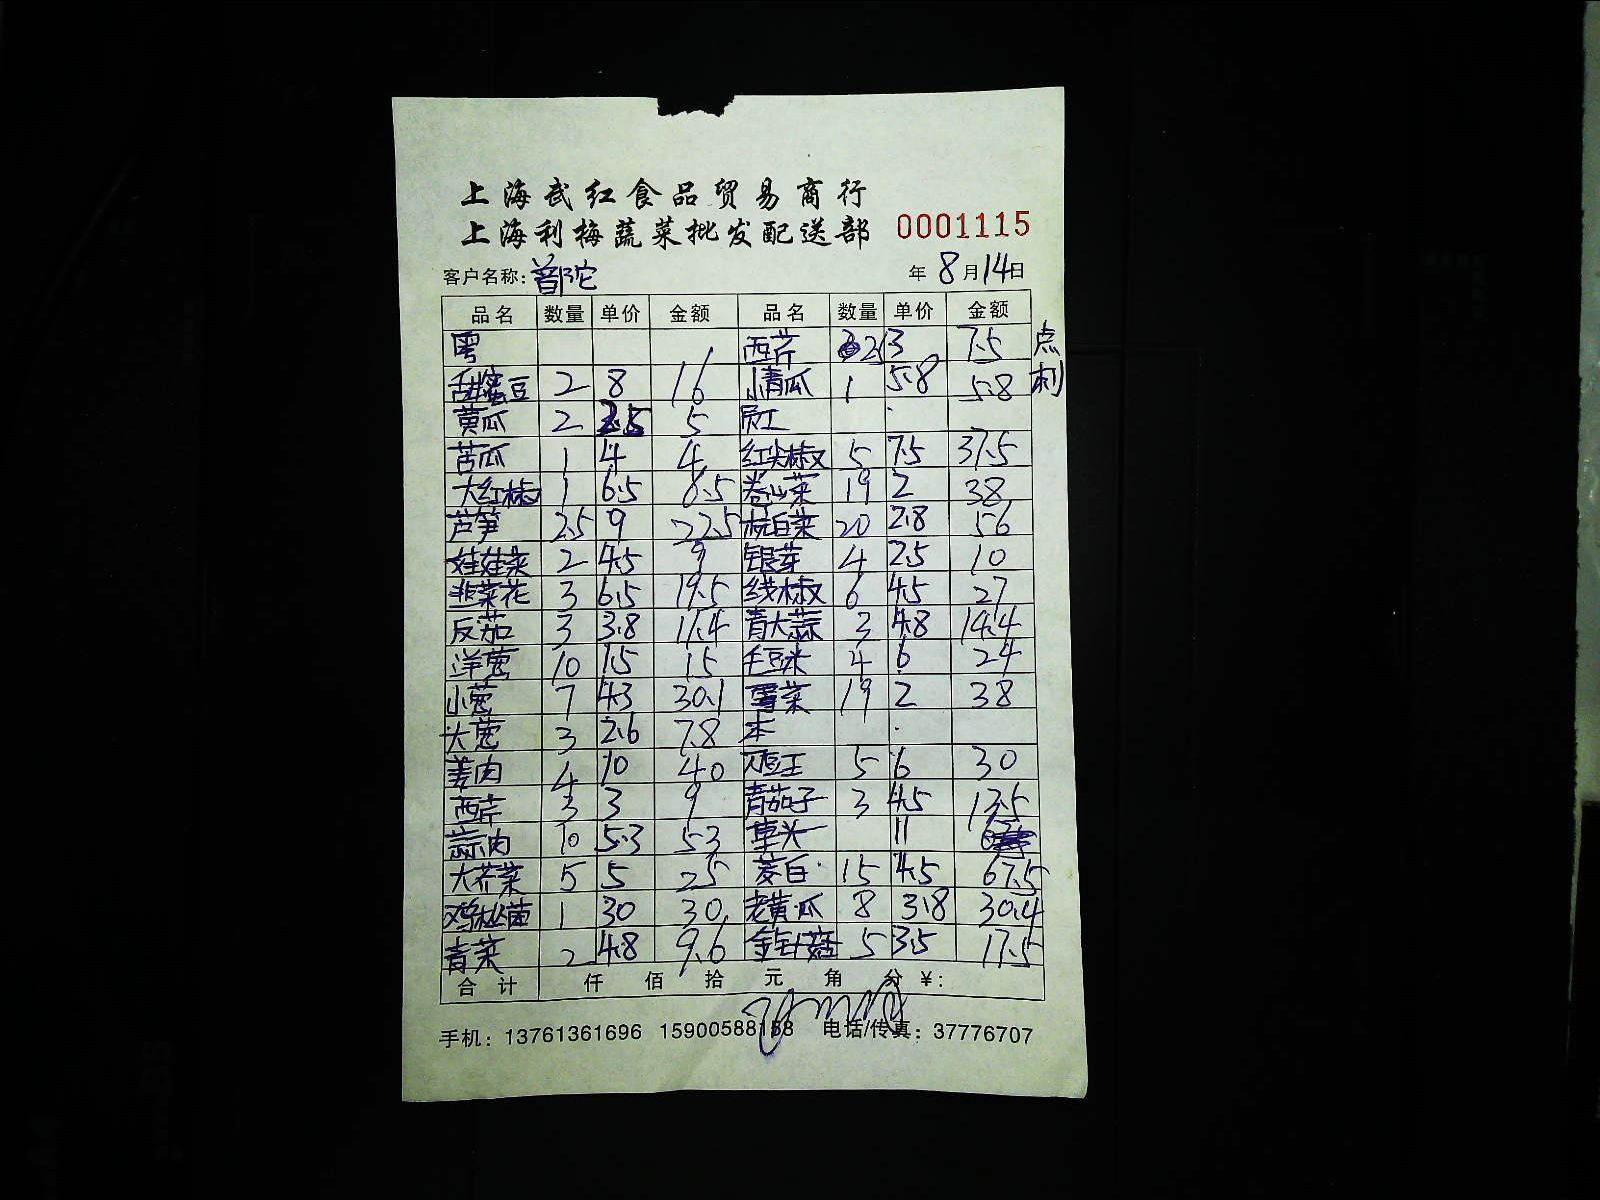 上海武红食品贸易商行
上海利梅蔬菜批发配送部 0001115
客户名称: 普陀 年 8 月 14 日
品名 数量 单价 金额 品名 数量 单价 金额
粤 西芹 3 7.5 点
甜蜜豆 2 8 16 小青瓜 1 5.8 5.8 利
黄瓜 2 2.5 5
苦瓜 1 4 4 红尖椒 5 7.5 37.5
大红椒 1 6.5 6.5 卷心菜 19 2 38
芦笋 2.5 9 22.5 杭白菜 20 2.8 56
娃娃菜 2 4.5 9 银芽 4 2.5 10
韭菜花 3 6.5 19.5 线椒 6 4.5 27
反茄 3 3.8 11.4 青大蒜 3 4.8 14.4
洋葱 10 1.5 15 毛豆米 4 6 24
小葱 7 4.3 30.1 雪菜 19 2 38
大葱 3 2.6 7.8 本
姜肉 4 10 40 5 6 30
西芹 3 3 9 青茄子 3 4.5 13.5
蒜肉 10 5.3 53 草头 11
大芥菜 5 5 25 茭白 15 4.5 67.5
鸡枞菌 1 30 30 老黄瓜 8 3.8 30.4
青菜 2 4.8 9.6 金针菇 5 3.5 17.5
合计 仟 佰 拾 元 角 分 ¥:
手机: 13761361696 15900588158 电话/传真: 37776707